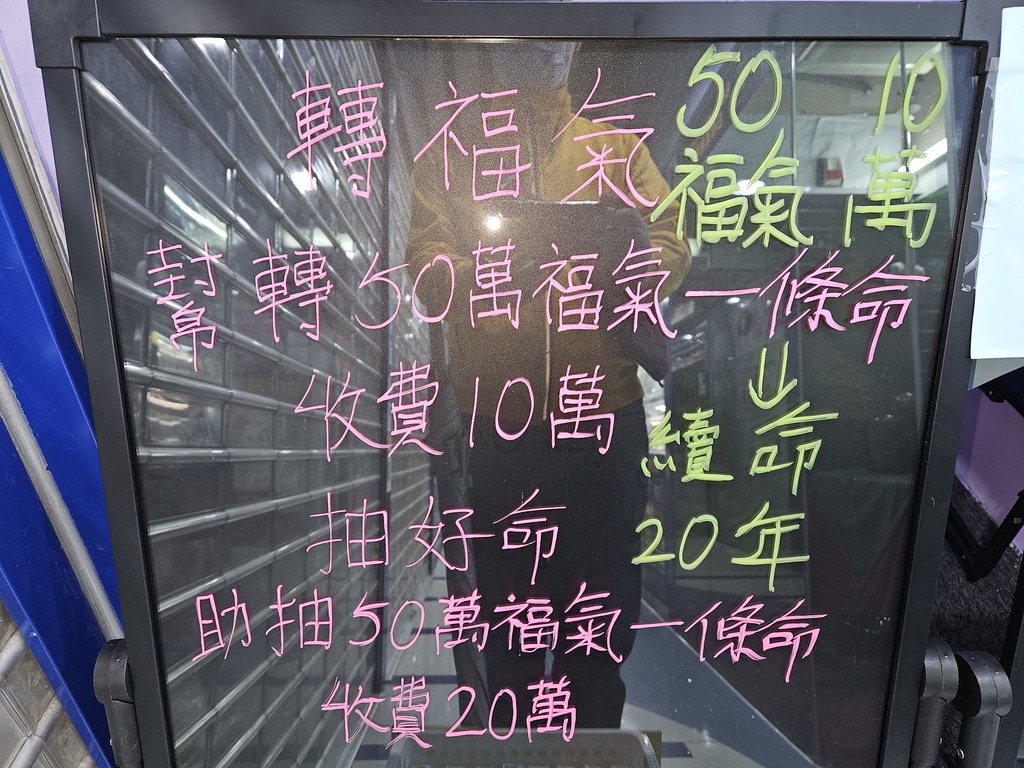 轉福氣
50 10
福氣 萬
幫轉50萬福氣一條命
收費10萬
續命
20年
抽好命
助抽50萬福氣一條命
收費20萬